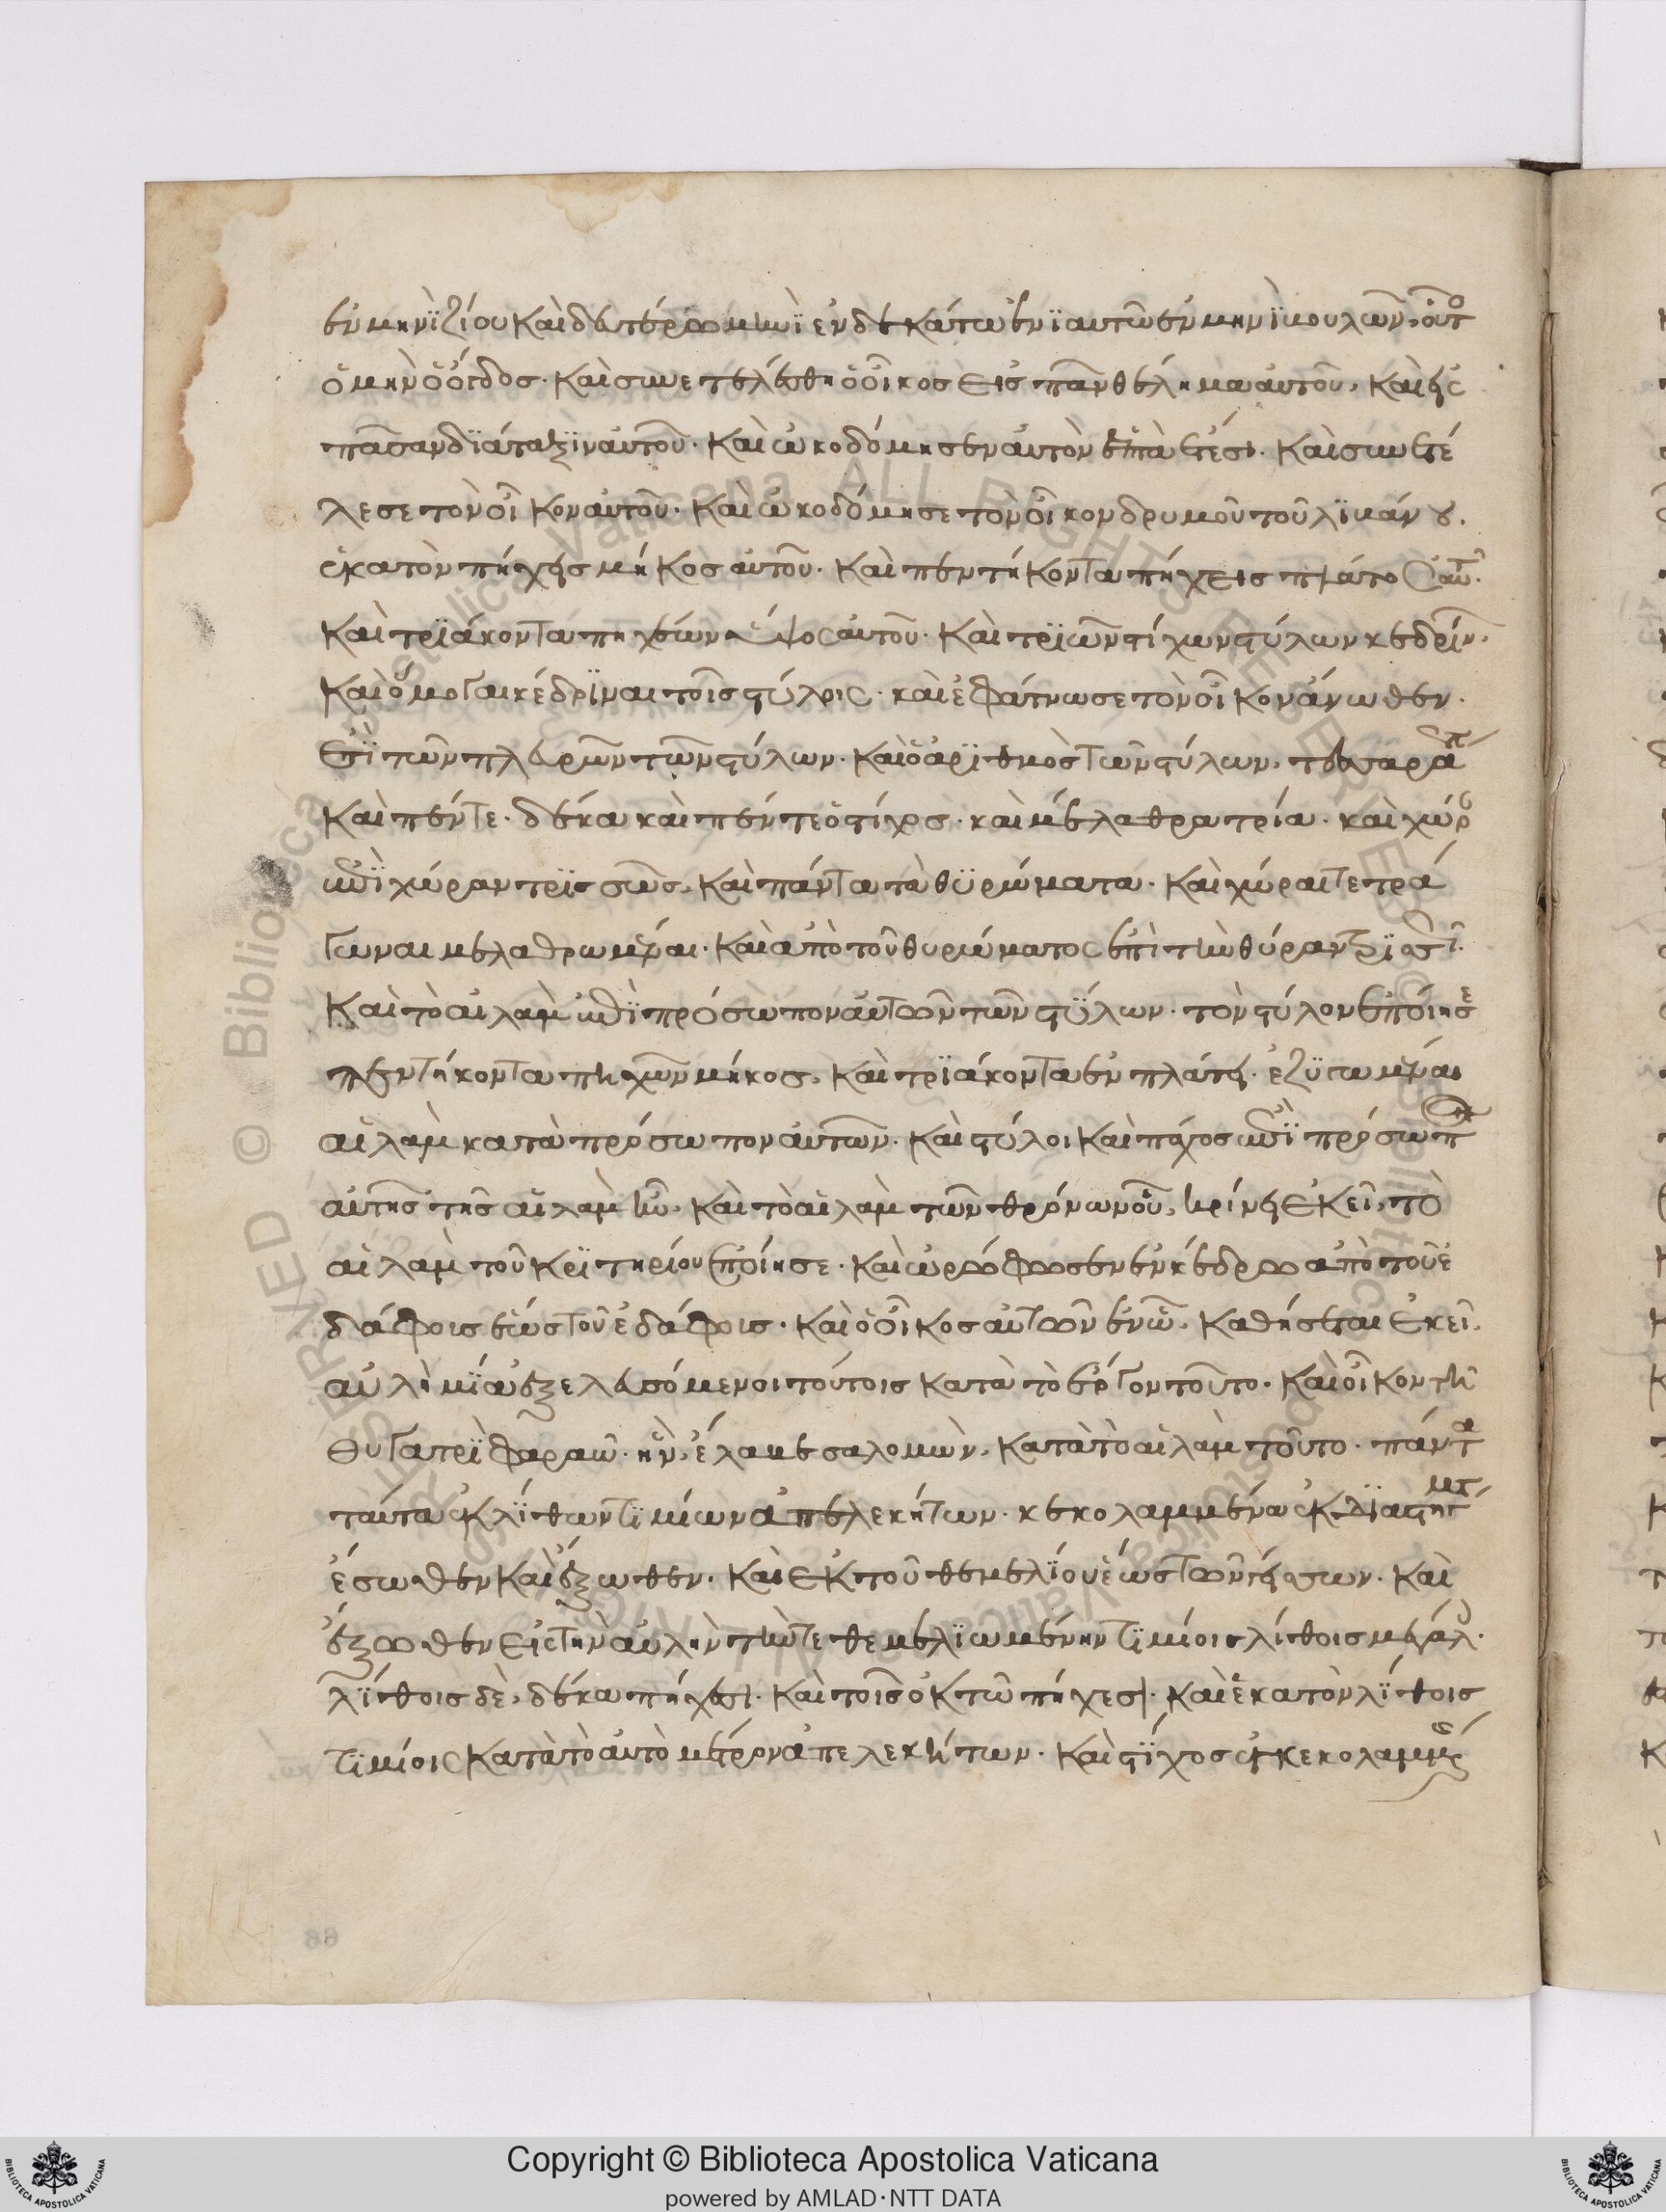 ἐν μηνῒ ζίου καὶ δευτέρω μηνῒ ἑνδεκάτω ἐνϊαυτῶ ἐν μηνῒ μουλων, οὗτο
ὁ μὴν ὁ ὄγδοος. καὶ συνετελέσθη ὁ οἶκος εἰς πᾶν θέλημα αὐτοῦ, καὶ εἰς
πᾶσαν δϊάταξϊν αὐτοῦ. καὶ ὠκοδόμησεν αὐτὸν ἑπτὰ ἔτεσι. καὶ συνετέ
λεσε τὸν οἶκον αὐτοῦ. καὶ ὠκοδόμησε τὸν οἶκον δρυμοῦ τοῦ λϊβάνου.
ἑκατὸν πήχεις μῆκος αὐτοῦ. καὶ πεντήκοντα πήχεις πλάτος αὐτοῦ.
καὶ τρϊάκοντα πηχέων ὕψος αὐτοῦ. καὶ τρϊῶν στίχων στύλων κεδρίν.
καὶ ὀμοῖαι κέδρϊναι τοῖς στύλοις. καὶ ἐφάτνωσε τὸν οἶκον ἄνωθεν.
ἐπῒ τῶν πλευρῶν τῶν στύλων. καὶ ὁ ἀρϊθμὸς τῶν στύλων, τεσσαρά
καὶ πέντε. δέκα καὶ πέντε ὁ στίχος. καὶ μέλαθρα τρία. καὶ χώρ
ἐπῒ χώραν τρϊσσῶς, καὶ πάντα τὰ θϋρώματα. καὶ χώραι τετρά
γωναι μελαθρωμέναι. καὶ ἀπὸ τοῦ θυρώματος ἐπὶ τὴν θύραν τρϊσσῶ.
καὶ τὸ αἰλὰμ ἐπῒ πρόσωπον αὐτῶν τῶν στϋλων. τὸν στύλον ἐποίησε
πεντήκοντα πηχῶν μῆκος, καὶ τρϊάκοντα ἐν πλάτει. ἐζϋγωμέναι
αἰλὰμ κατὰ πρόσωπον αὐτῶν. καὶ στύλοι καὶ πάχος ἐπῒ πρόσωπ
αὐτῆς τῆς αἰλὰμ ἦν, καὶ τὸ αἰλὰμ τῶν θρόνων οὗ, κρίνει ἐκεῖ, τὸ
αἰλὰμ τοῦ κρϊτηρίου ἐποίησε. καὶ ὠρόφωσεν ἐν κέδρω ἀπὸ τοῦ ἐ
δάφοις ἕως τοῦ ἐδάφοις. καὶ ὁ οἶκος αὐτῶν ἐν ὧ, καθήσεται ἐκεῖ.
αὐλὴ μία ἐξελευσόμενοι τούτοις κατὰ τὸ ἔργον τοῦτο. καὶ οἶκον τῆ
θυγατρῒ φαραώ. ἣν, ἔλαβε σαλομών, κατὰ τὸ αἰλὰμ τοῦτο. πάντα
ταῦτα ἐκ λΐθων τϊμίων ἀπελεκήτων. κεκολαμμένα ἐκ δϊαστήματ
ἔσωθεν καὶ ἔξωθεν. καὶ ἐκ τοῦ θεμελΐου ἕως τῶν γεισων. καὶ
ἔξωθεν εἰς τὴν αὐλὴν τὴν τεθεμελϊωμένην τϊμίοις λίθοις μεγάλ.
λΐθοις δὲ, δέκα πήχεσι. καὶ τοῖς ὀκτὼ πήχεσι. καὶ ἑκατὸν λΐθοις
τϊμίοις κατὰ τὸ αὐτὸ μέτρον ἀπελεκήτων. καὶ στΐχος ἐκκεκολαμμ